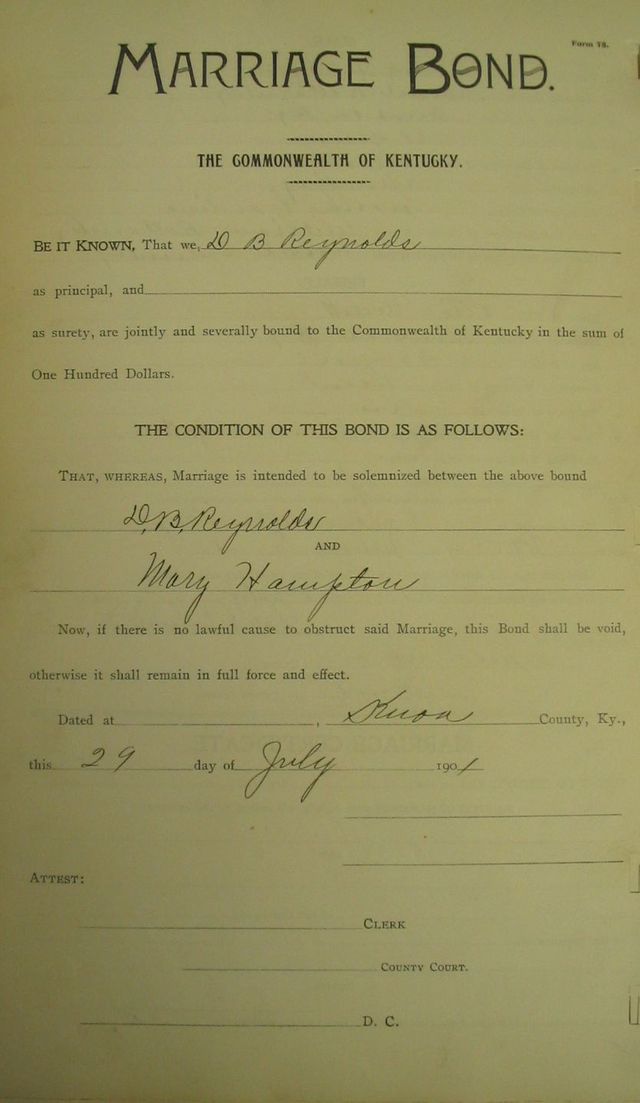 Form 78.
MARRIAGE BOND.
THE COMMONWEALTH OF KENTUCKY.
BE IT KNOWN, That we, D B Reynolds
as principal, and
as surety, are jointly and severally bound to the Commonwealth of Kentucky in the sum of
One Hundred Dollars.
THE CONDITION OF THIS BOND IS AS FOLLOWS:
THAT, WHEREAS, Marriage is intended to be solemnized between the above bound
D. B. Reynolds
AND
Mary Hampton
Now, if there is no lawful cause to obstruct said Marriage, this Bond shall be void,
otherwise it shall remain in full force and effect.
Dated at , Knox County, Ky.,
this 29 day of July 1901
ATTEST:
CLERK
COUNTY COURT.
D. C.